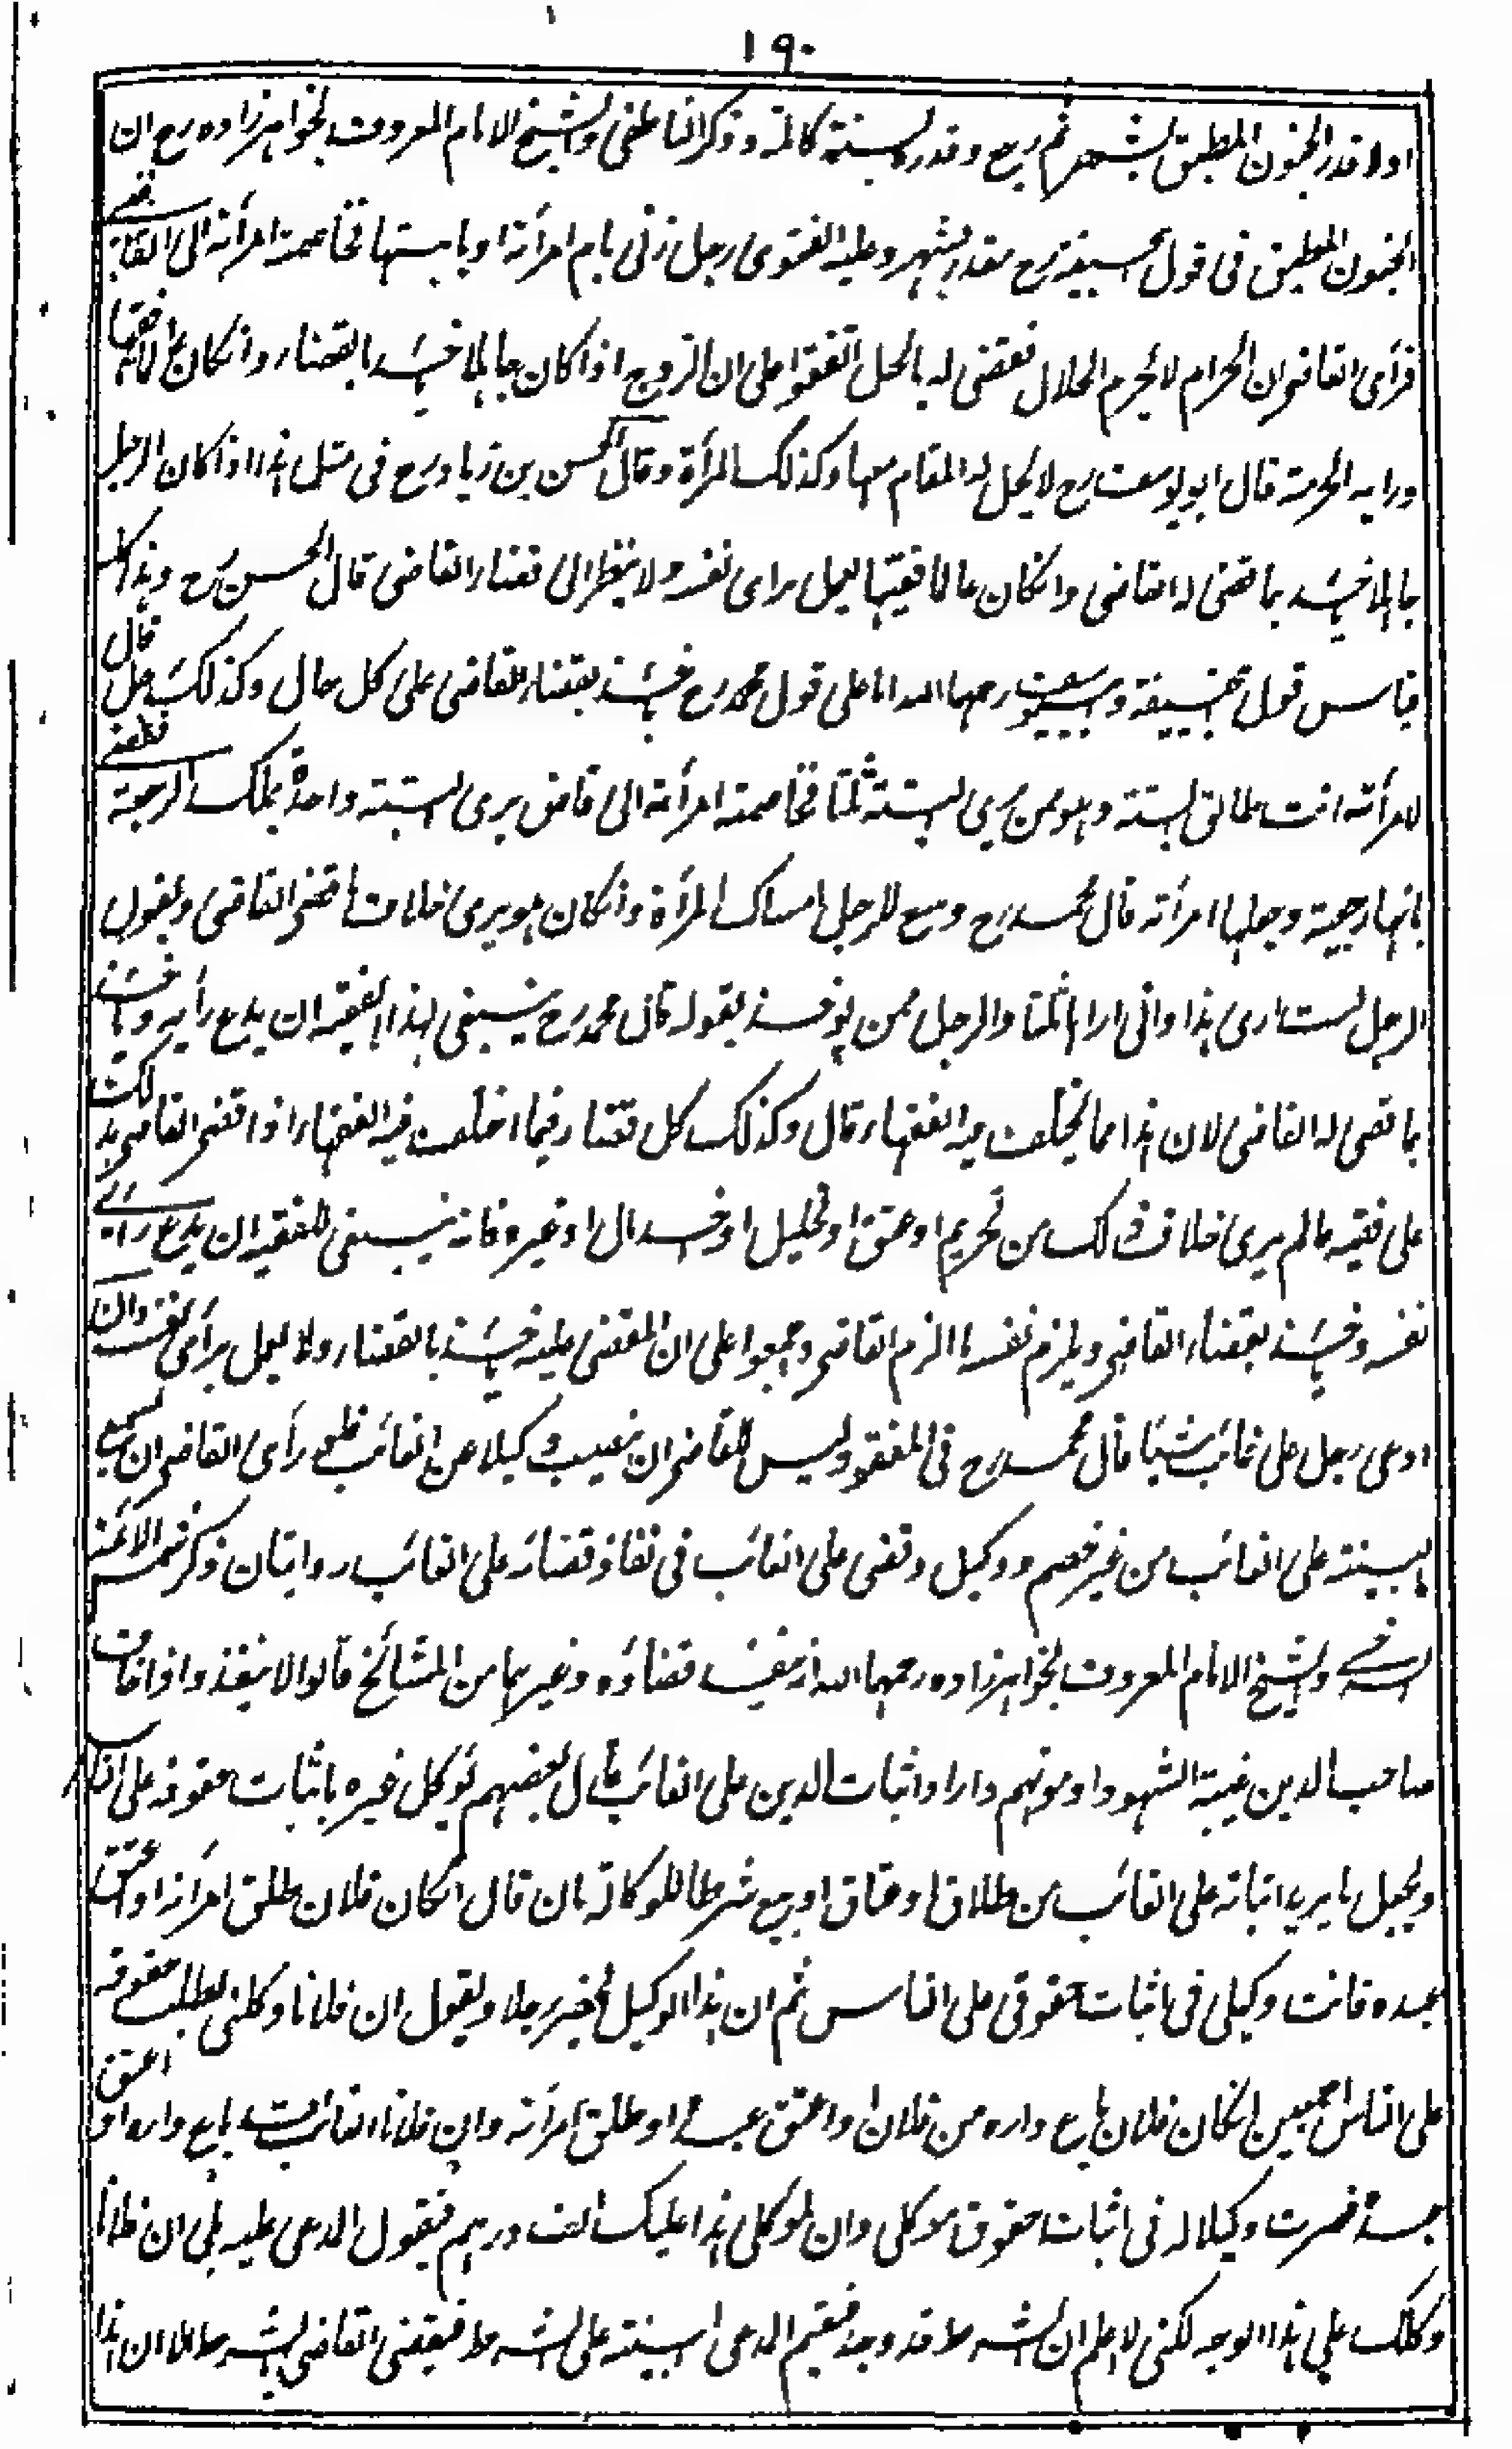 ١٩٠
اولا قدر الجنون المطبق بشهر ثم رجع وقدره بسنة كاملة وذكر الناطفى والشيخ الامام المعروف بخواهرزاده رح ان
الجنون المطبق فى قول ابيحنيفة رح مقدر بشهر وعليه الفتوى رجل زنى بام امرأته او بابنتها فخاصمته امرأته الى القاضى
فرأى القاضى ان الحرام لا يحرم الحلال فقضى له بالحل اتفقوا على ان الزوج اذا كان جاهلا يأخذ بالقضاء وانكان عالما فقيها
ورايه الحرمة قال ابو يوسف رح لا يحل له المقام معها وكذلك المرأة وقال الحسن بن زياد رح فى مثل هذا اذا كان الرجل
جاهلا يأخذ بما قضى له القاضى وانكان عالما فقيها يعمل براى نفسه ولا ينظر الى قضاء القاضى قال الحسن رح وهذا كله
قياس قول ابيحنيفة وابييوسف رحمهما الله اما على قول محمد رح يأخذ بقضاء القاضى على كل حال وكذلك رجل قال
لامرأته انت طالق البتة وهو ممن يرى البتة ثلثا فخاصمته امرأته الى قاض يرى البتة واحدة يملك الرجعة فقضى
بانها رجعية وجعلها امرأته قال محمد رح وسع للرجل امساك المرأة وانكان هو يرى خلاف ما قضى القاضى ويقول
الرجل لست ارى هذا وانى اراها ثلثا والرجل ممن يؤخذ بقوله قال محمد رح ينبغى لهذا الفقيه ان يدع رأيه ويأخذ
بما قضى له القاضى لان هذا مما يختلف فيه الفقهاء قال وكذلك كل قضاء فيما اختلف فيه الفقهاء اذا قضى القاضى بذلك
على فقيه عالم يرى خلاف ذلك من تحريم او عتق او تحليل او اخذ مال او غيره فانه ينبغى للفقيه ان يدع رأى
نفسه ويأخذ بقضاء القاضى ويلزم نفسه ما الزم القاضى واجمعوا على ان المقضى عليه يأخذ بالقضاء ولا يعمل برأى نفسه وان
ادعى رجل على غائب شيئا قال محمد رح فى المفقود وليس للقاضى ان ينصب وكيلا عن الغائب فلو رأى القاضى ان يسمع
البينة على الغائب من غير خصم ووكيل وقضى على الغائب فى نفاذ قضائه على الغائب روايتان ذكر شمس الائمة
السرخسى والشيخ الامام المعروف بخواهرزاده رحمهما الله انه ينفذ قضاؤه وغيرهما من المشائخ قالوا لا ينفذ واذا خاف
صاحب الدين غيبة الشهود او موتهم واراد اثبات الدين على الغائب قال بعضهم يوكل غيره باثبات حقوقه على الناس
ويجعل ما يريد اثباته على الغائب من طلاق او عتاق او بيع شرطا للوكالة بان قال انكان فلان طلق امرأته او اعتق
عبده فانت وكيلى فى اثبات حقوقى على الناس ثم ان هذا الوكيل يحضر رجلا ويقول ان فلانا وكلنى لطلب حقوقه
على الناس اجمعين انكان فلان باع داره من فلان او اعتق عبده او طلق امرأته وان فلانا الغائب قد باع داره او اعتق
عبده فصرت وكيلا له فى اثبات حقوق موكلى وان لموكلى هذا عليك الف درهم فيقول المدعى عليه بلى ان فلانا
وكلك على هذا الوجه لكنى لا اعلم ان الشرط قد وجد فيقيم المدعى البينة على الشرط فيقضى القاضى بالشرط الا ان هذا